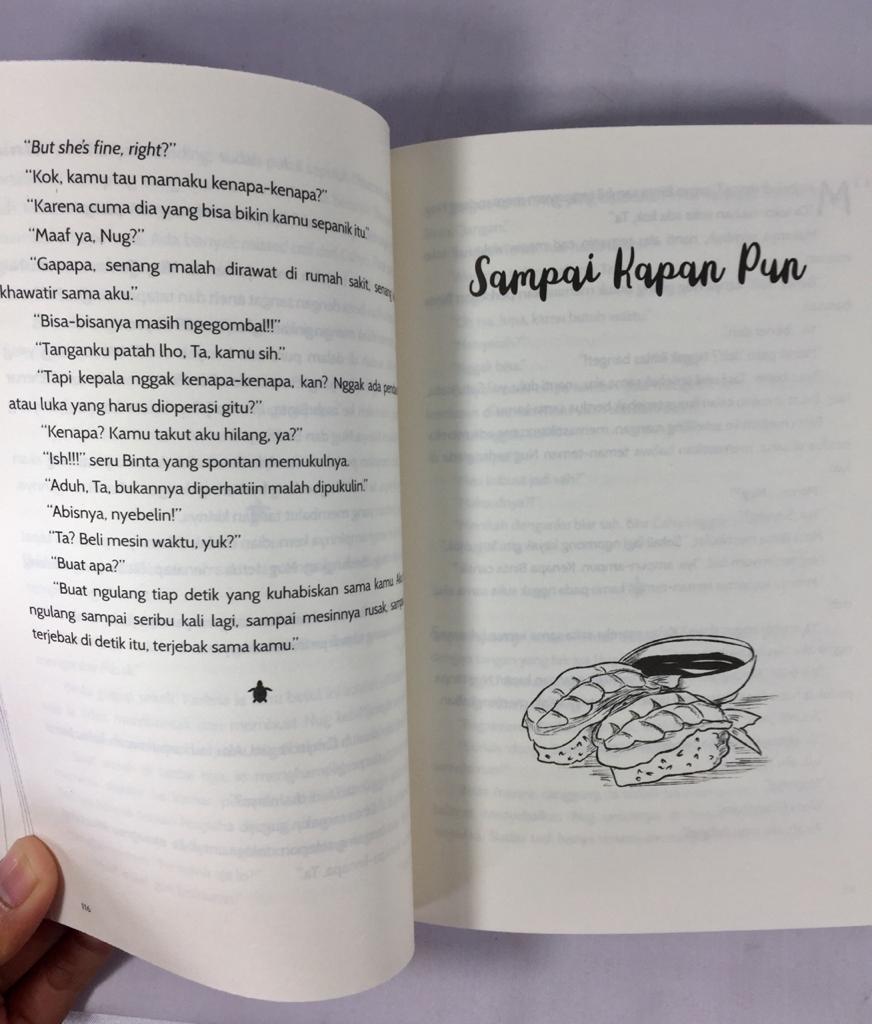 "But she's fine, right?"
"Kok, kamu tau mamaku kenapa-kenapa?"
"Karena cuma dia yang bisa bikin kamu sepanik itu."
"Maaf ya, Nug?"
"Gapapa, senang malah dirawat di rumah sakit, senang
khawatir sama aku."
"Bisa-bisanya masih ngegombal!!"
"Tanganku patah lho, Ta, kamu sih."
"Tapi kepala nggak kenapa-kenapa, kan? Nggak ada
atau luka yang harus dioperasi gitu?"
"Kenapa? Kamu takut aku hilang, ya?"
"Ish!!!" seru Binta yang spontan memukulnya.
"Aduh, Ta, bukannya diperhatiin malah dipukulin."
"Abisnya, nyebelin!"
"Ta? Beli mesin waktu, yuk?"
"Buat apa?"
"Buat ngulang tiap detik yang kuhabiskan sama kamu.
ngulang sampai seribu kali lagi, sampai mesinnya rusak,
terjebak di detik itu, terjebak sama kamu."
116
Sampai Kapan Pun